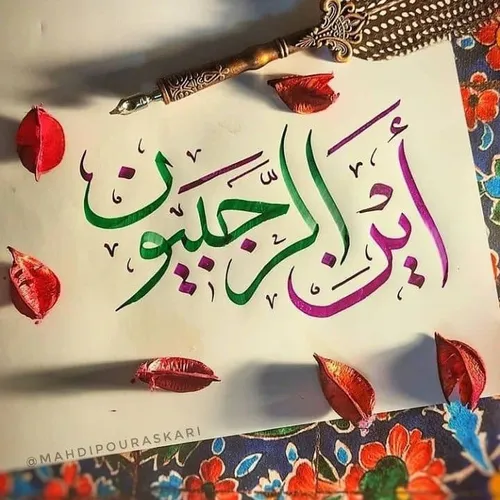 أين الرَّجبيون
@MAHDIPOURASKARI